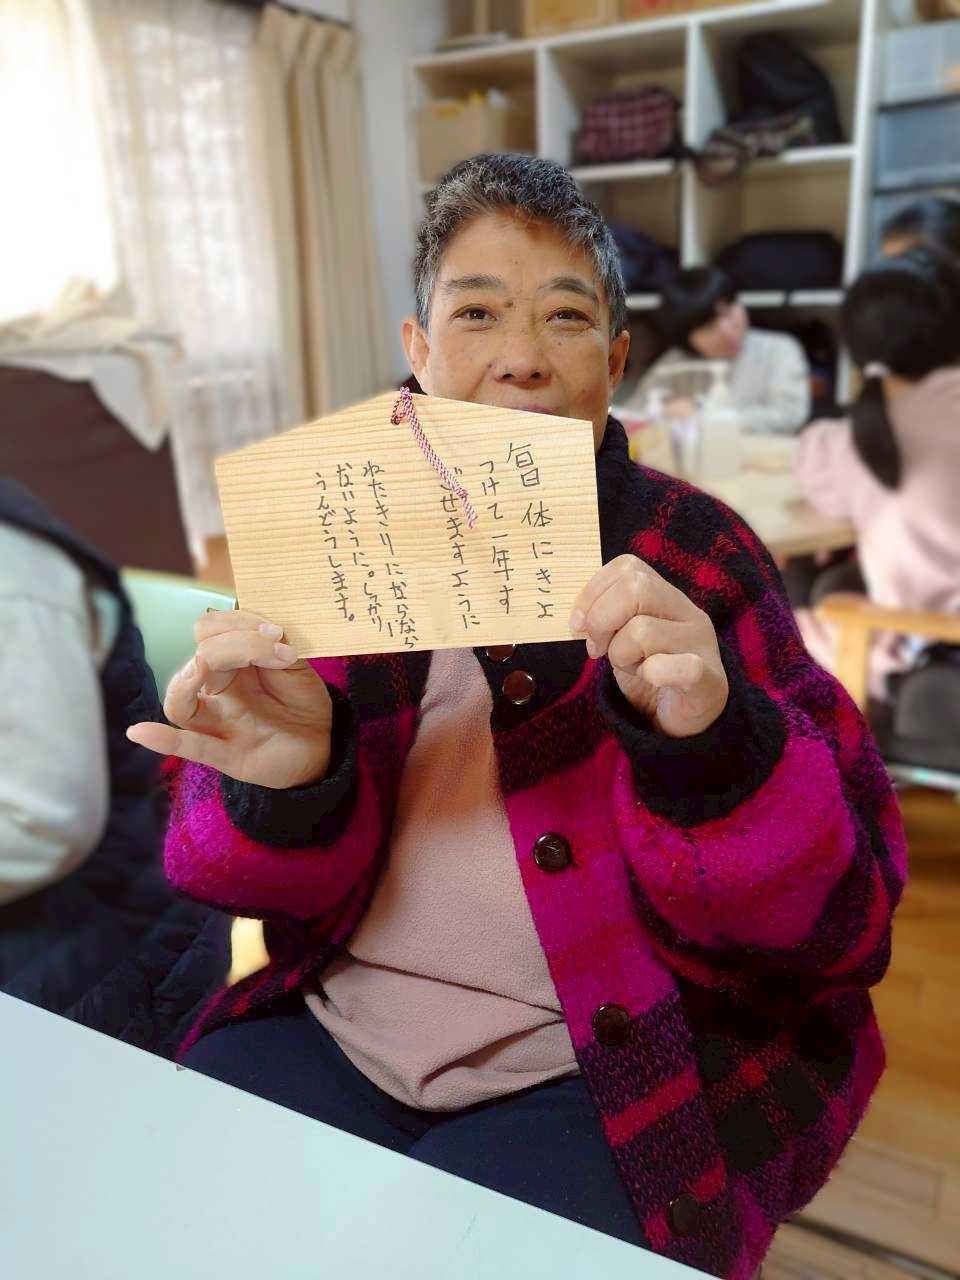 体にきよ
つけて一年す
ごせますように
ねたきりにならなら
ないように。しっかり
うんどうします。